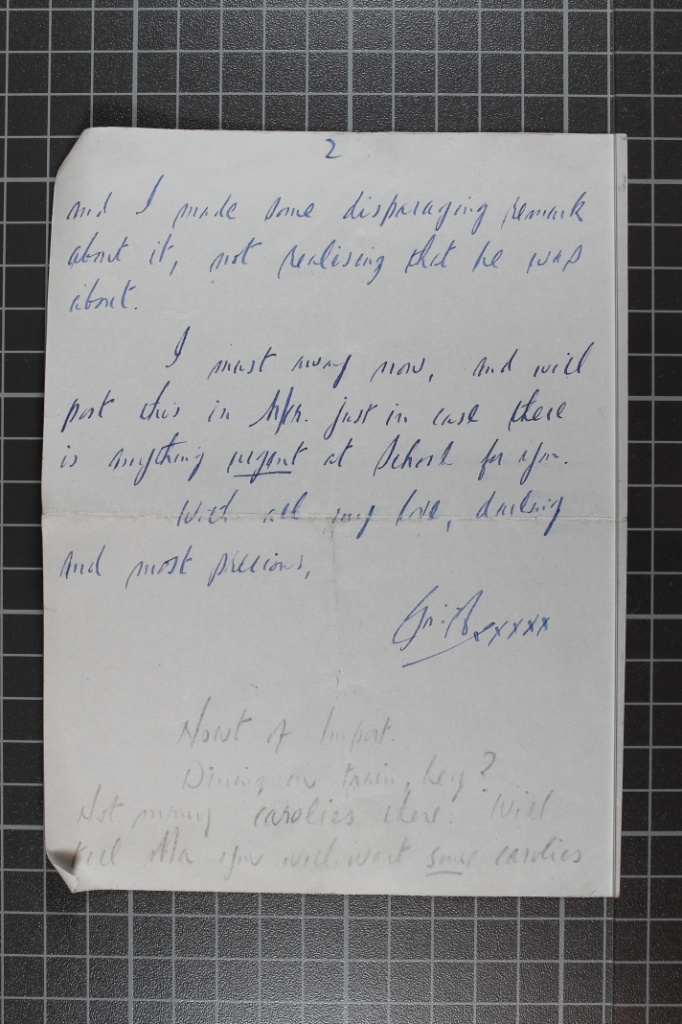 2
and I made some disparaging remark
about it, not realising that he was
about.
I must away now, and will
post this in M/cr. just in case there
is anything urgent at School for you.
With all my love, darling
and most precious,
xxxxx
Nowt of Import.
Dining on train, hey?
Not many carolies there. Will
tell Ma you will want some carolies